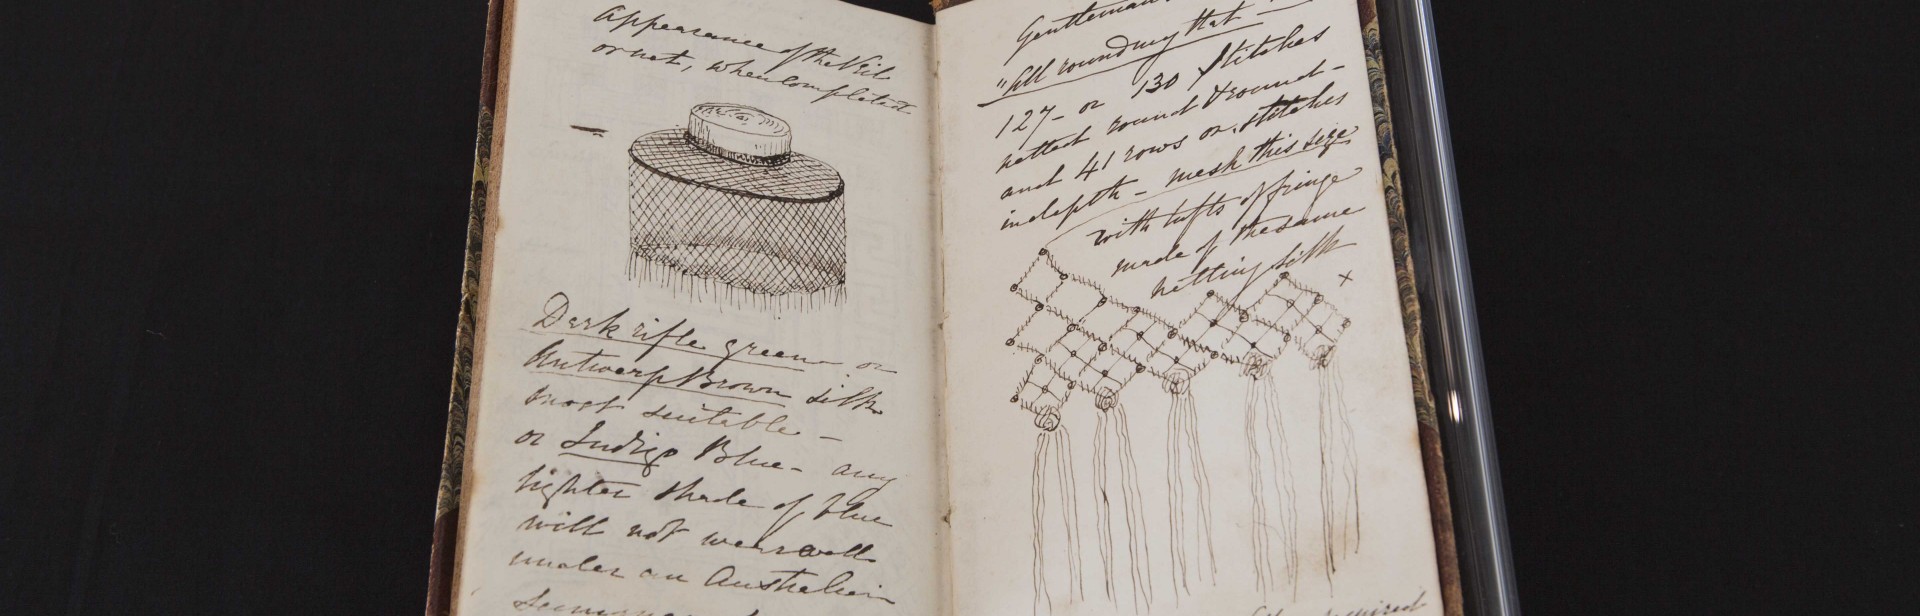 Appearance of the Veil
or net, when completed
Dark rifle green or
Antwerp Brown silk
most suitable –
or Indigo Blue – any
lighter shade of blue
will not wear well
under an Australian
summer
Gentleman's
"All rounding Hat –
127 – or 130 Stitches
netted round & round –
and 41 rows or stitches
in depth – mesh this size
with tufts of fringe
made of the same
netting silk
x
required